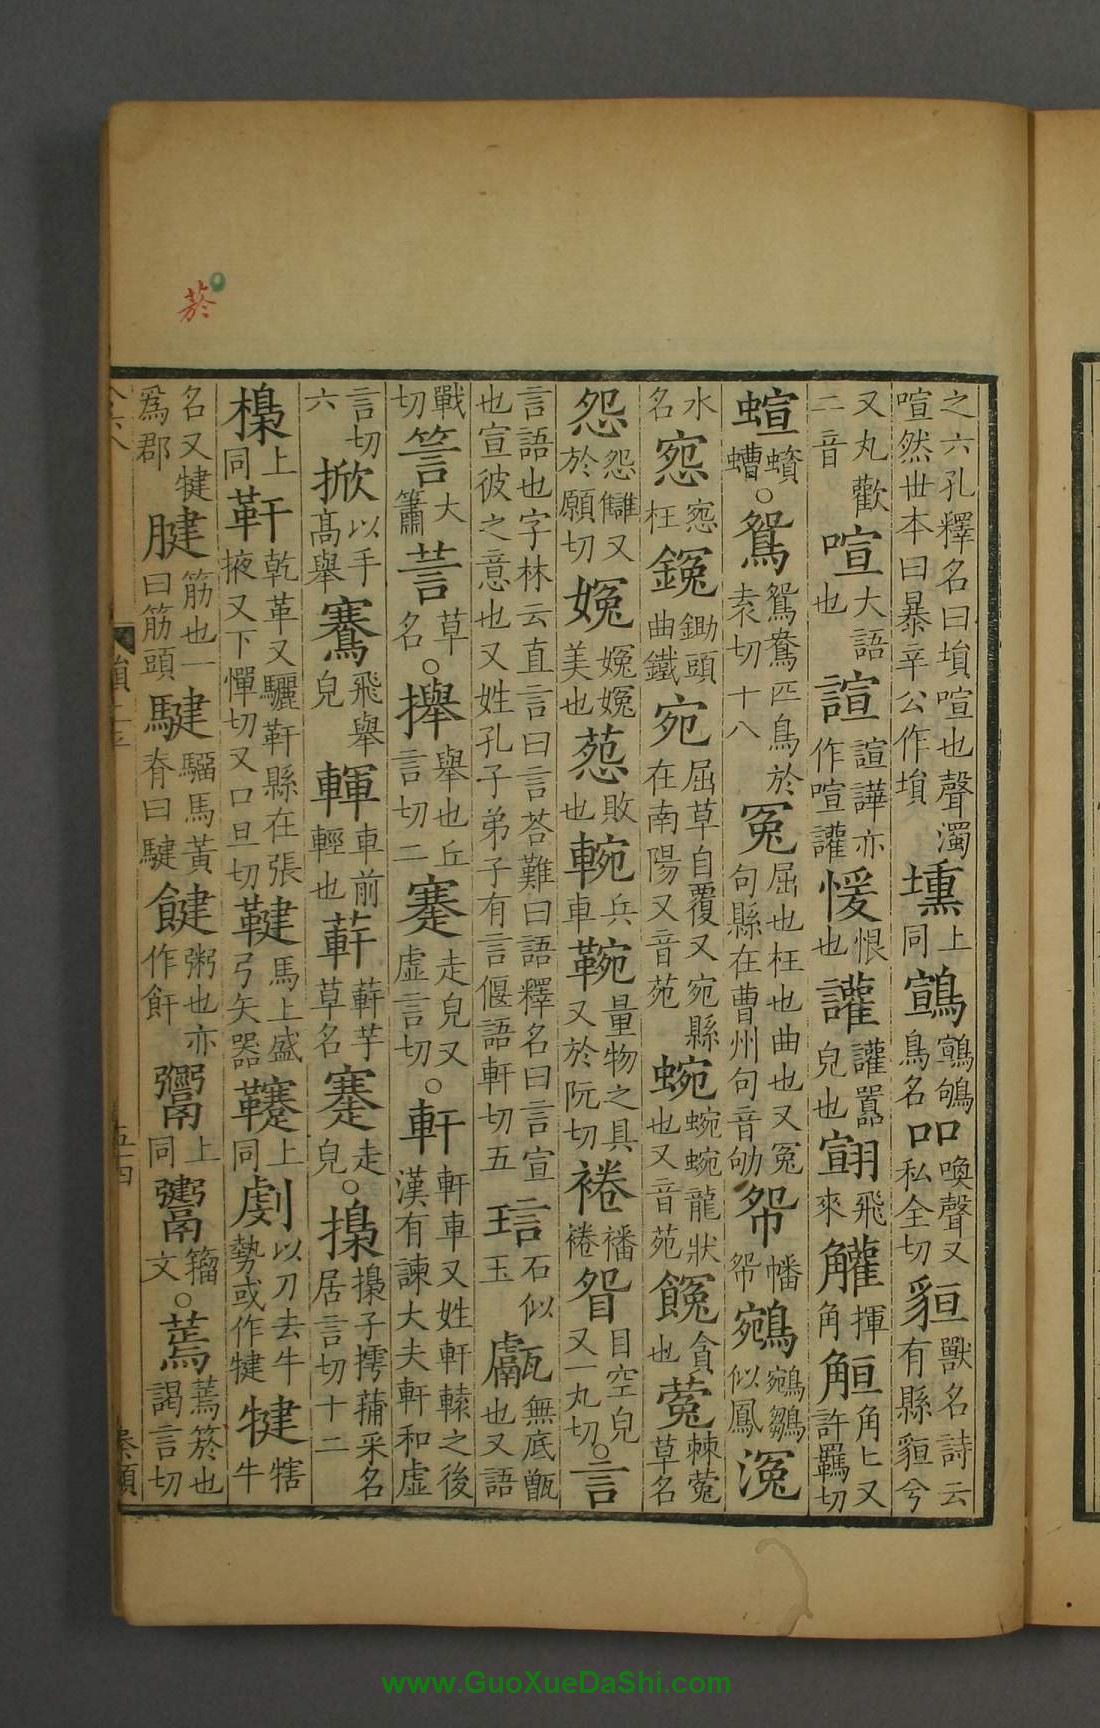 之六孔釋名曰塤喧也聲濁喧然世本曰暴辛公作塤壎上同䳦䳦鴝鳥名吅喚聲又私全切貆獸名詩云有縣貆兮
又丸歡二音喧大語也諠諠譁亦作喧讙愋恨也讙讙嚻皃也翧飛來䑏揮角觛角匕又許羈切
蝖蟦螬○鴛鴛鴦匹鳥於袁切十八冤屈也枉也曲也又冤句縣在曹州句音劬帤幡帤鵷鵷鶵似鳳涴
水名窓窓枉鋺鋤頭曲鐵宛屈草自覆又宛縣在南陽又音苑蜿蜿蜿龍狀也又音苑䬧貪也䓕棘䓕草名
怨怨讎又於願切婏婏婏美也葾敗也䡝兵車䩩量物之具又於阮切裷襎裷眢目空皃又一丸切○言
言語也字林云直言曰言荅難曰語釋名曰言宣也宣彼之意也又姓孔子弟子有言偃語軒切五琂石似玉甗無底甑也又語
戰切䇾大簫䓂草名○攑舉也丘言切二䙭走皃又虛言切○軒軒車又姓軒轅之後漢有諫大夫軒和虛
言切六掀以手高舉鶱飛舉皃䡣車前輕也蓒蓒芋草名䙭走皃○揵揵子樗蒱采名居言切十二
樢上同靬乾革又驪靬縣在張掖又下憚切又口旦切鞬馬上盛弓矢器韉上同劇以刀去牛勢或作犍犍犗牛
名又犍爲郡腱筋也一曰筋頭騝騮馬黃脊曰騝䭈粥也亦作飦鬻上同鬻籀文○蔫蔫菸也謁言切
菸